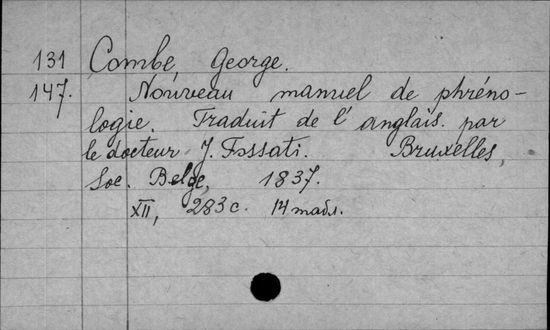 131 Combe, George.
147. Nouveau manuel de phréno-
logie. Traduit de l'anglais. par
le docteur J. Fossati. Bruxelles,
Soc. Belge, 1837.
XII, 283 c. 14